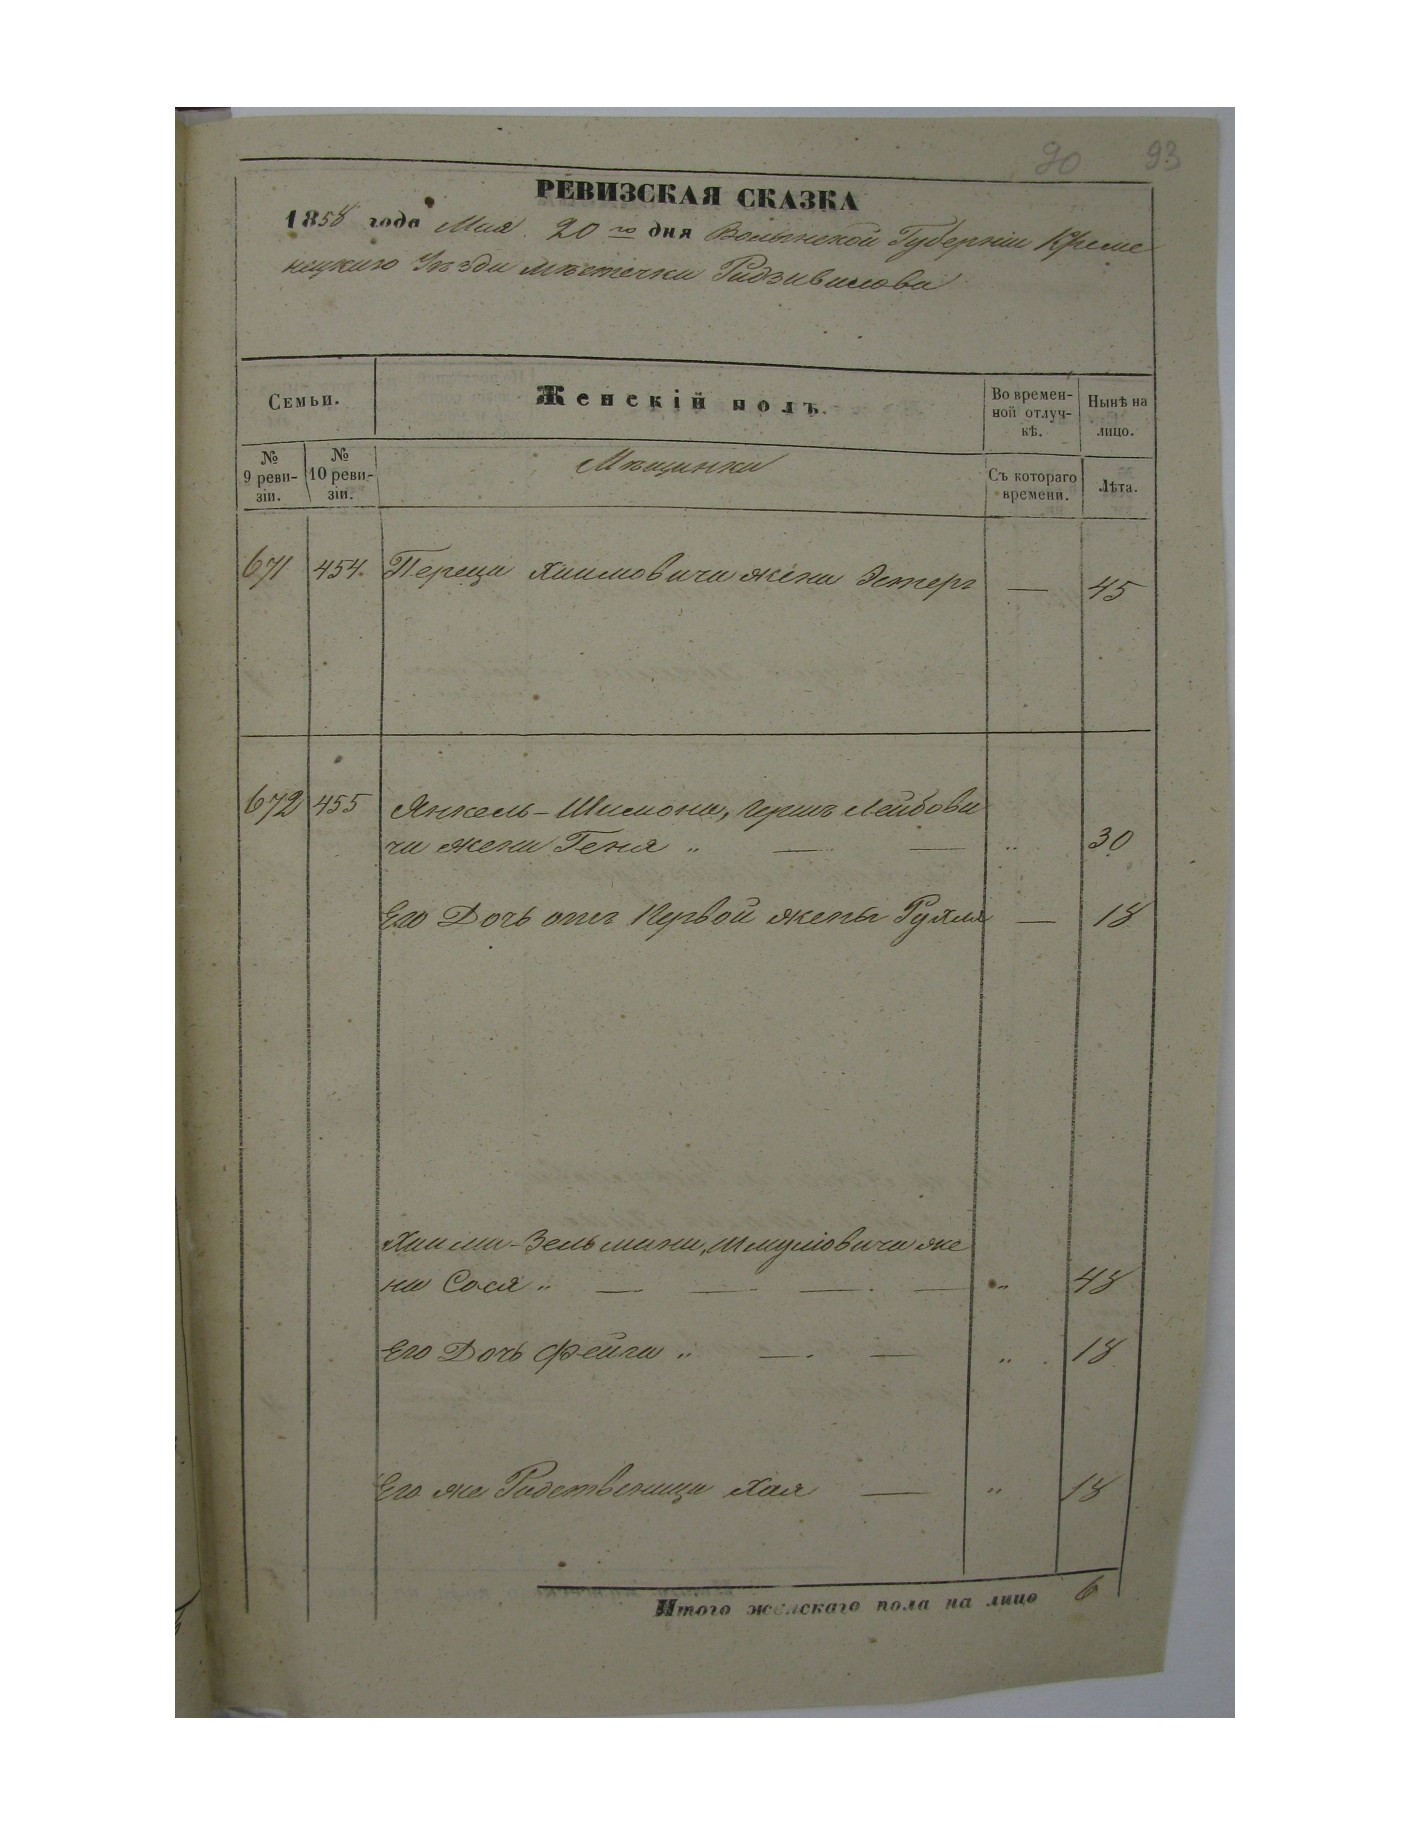 90 93
РЕВИЗСКАЯ СКАЗКА
1858 года Мая 20 го дня Волынской Губерніи Креме
нецкаго Уѣзда мѣстечка Радзивилова
Семьи. Женскій полъ. Во времен-
ной отлуч-
кѣ. Нынѣ на
лицо.
№
9 реви-
зіи. №
10 реви-
зіи. Мѣщанки Съ котораго
времени. Лѣта.
671 454. Переца Хаимовича жена Эстеръ — 45
672 455 Янкель-Шимона, Гершъ Лейбови
ча жена Геня „ — — „ 30
Его Дочь отъ Первой жены Рухля — 18
Хаима-Зельмана, Шмулiовича же
на Сося „ — — — — „ 48
Его Дочь Фейга „ — — „ 18
Его же Радственица Хая — „ 18
Итого женскаго пола на лицо 6